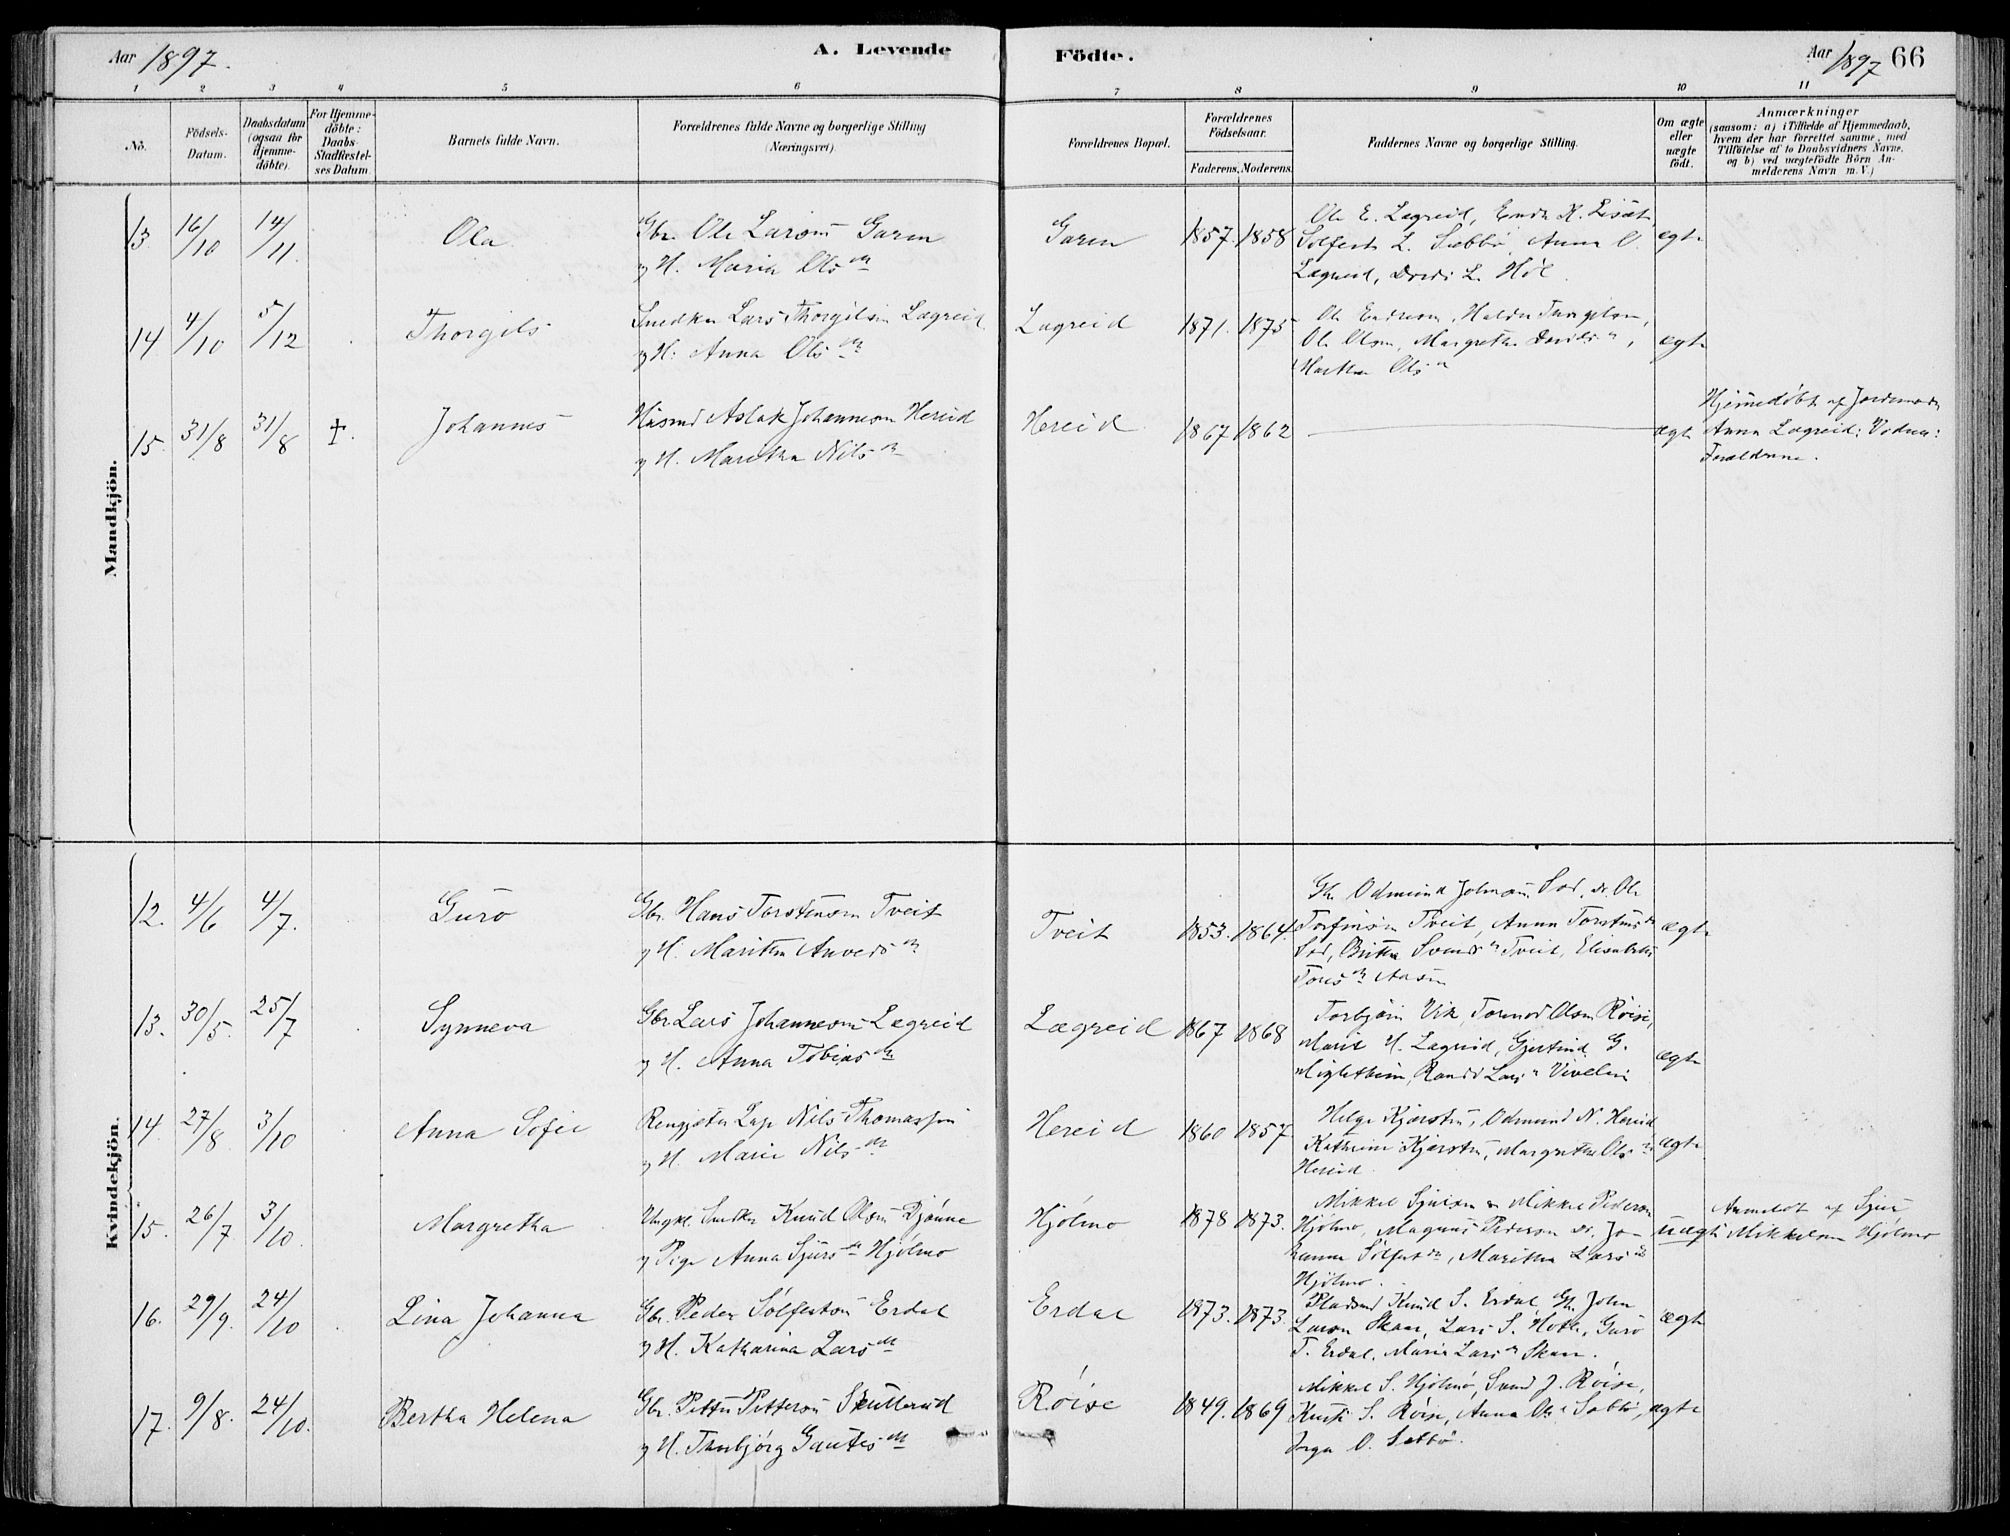 Aar 1897.
A. Levende
Födte.
Aar 1897
66
1 2 3 4 5 6 7 8 9 10 11
No.
Födsels-
Datum.
Daabsdatum
(ogsaa for
Hjemme-
döbte).
For Hjemme-
döbte:
Daabs-
Stadfestel-
ses Datum
Barnets fulde Navn.
Forældrenes fulde Navne og borgerlige Stilling
(Næringsvei).
Forældrenes Bopæl.
Forældrenes
Födselsaar.
Faderens. Moderens.
Faddernes Navne og borgerlige Stilling.
Om ægte
eller
uægte
födt.
Anmærkninger
(saasom: a) i Tilfælde af Hjemmedaab,
hvem der har forrettet samme, med
Tilföielse af to Daabsvidners Navne,
og b) ved uægtefödte Börn An-
melderens Navn m. V.)
Mandkjön.
13 16/10 14/11 Ola
Gbr. Ole Larsen Garen
og H. Maria Olsdtr
Garen 1857. 1858
Ole E. Lægreid,
Solfest L. Sæbbö, Anna O.
Lægreid, L. Höl.
ægte
14 4/10 5/12 Thorgils
Snedker Lars Thorgilsen Lægreid
og H. Anna Olsdtr
Lægreid 1871. 1875
Ole Endresen,
Ole Olsen, Margretha Davidsdr,
Martha Olsdr
ægte
15. 31/8 31/8 †. Johannes
Husmd Aslak Johannesen Hereid
og H. Maritha Nilsdtr
Hereid 1867 1862
ægte
Hjemmedöbt af Jordemoder
Anna Lægreid; Vidner:
Forældrene.
Kvindekjön.
12. 4/6 4/7. Guro
Gbr. Hans Torstensen Tveit
og H. Maritha Anversdtr
Tveit 1853. 1864.
Gbr. Odmund Johnsen Sæd, do. Ole
Torfinsen Tveit, Anna Torstensdr
Sæd, Britha Svendsdr Tveit, Elisabeth

ægte
13. 30/5. 25/7 Synneva
Gbr Lars Johannesen Lægreid
og H. Anna Tobiasdtr
Lægreid 1867 1868
Torbjörn Vik, Tormod Olsen Röise,
Marit H. Lægreid, Gjertrud G.
Myklethun, Randi Larsdr Viveli
ægte
14. 27/8. 3/10 Anna Sofie
Rengjæter Lap Nils Thomassen
og H. Marie Nilsdtr
Hereid 1860 1857
Helge Kjærstein, Odmund N. Hereid
Kathrine Kjærstein, Margretha Olsdr
Hereid.
ægte
15. 26/7 3/10. Margretha
Ungkl. Snedker Knud Olsen Djönne
og Pige Anna Sjursdtr Hjölmo
Hjölmo 1878 1873.
Mikkel Sjursen & Mikkel Pedersen
Hjölmo, Magnus Pedersen do. Jo-
hanna Solfestdtr, Maritha Larsdtr
Hjölmo.
uægte
Anmeldt af Sjur
Mikkelsen Hjölmo
16. 29/9. 24/10 Lina Johanna
Gbr. Peder Solfestsen Erdal
og H. Katharina Larsdtr
Erdal 1873. 1873.
Pladsmd Knud S. Erdal, Gbr. John
Larsen Skaar, Lars S. Hotle, Guro
T. Erdal, Maria Larsdr Skaar.
ægte
17. 9/8. 24/10. Bertha Helena
Gbr. Petter Pettersen Skullerud
og H. Thorbjörg Gautesdtr
Röise 1849. 1869
Mikkel S. Hjölmo, Svend J. Röise,
S. Röise, Anna Olsdr Sæbbö,
Inga O. Sæbbö.
ægte